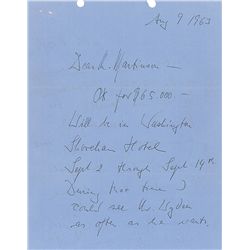 Aug 9 1963
Dear Mr. Martinson —
OK for $65.000 —
Will be in Washington
Shoreham Hotel
Sept 2 through Sept 19th
During that time I
could see Mr. Wyden
as often as he wants.